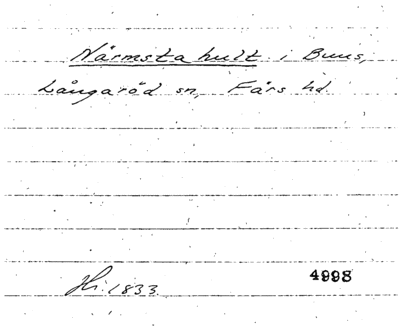 Närmsta hult i Buus,
Långaröd sn, Färs hd.
Hi. 1833
4998